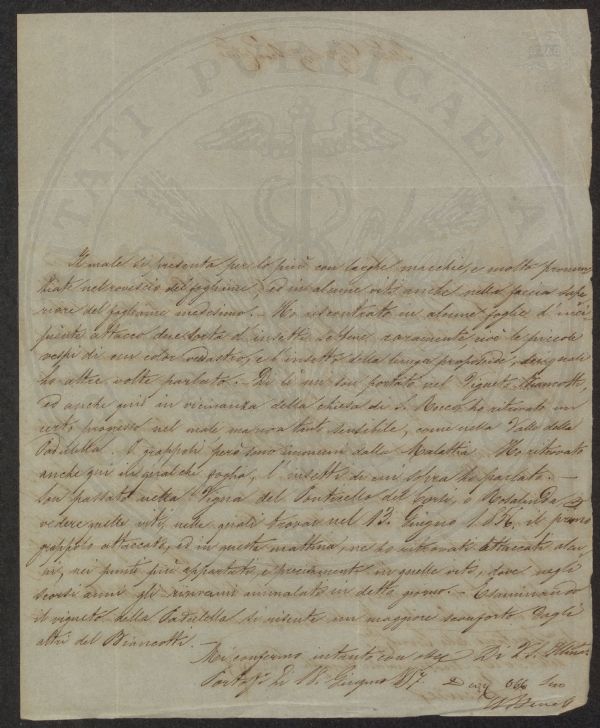 Il male si presenta per lo più con larghe macchie, e molto pronun
ziate nel rovescio del fogliame, ed in alcune viti anche nella faccia supe
riore del fogliame medesimo. - Ho riscontrato in alcune foglie d'inci
piente attacco due sorta d'insetti, sebbene raramente cioè le piccole
vespi di un color rossastro, e l'insetto della lunga proboscide, dei quali
ho altre volte parlato. - Di lì mi son portato nel Vigneto Biancotti,
ed anche qui in vicinanza della chiesa di S. Rocco, ho ritrovato un
certo progresso nel male ma non tanto sensibile, come nella Valle della
Padulella. I grappoli però sono immuni dalla Malattia. Ho ritrovato
anche qui in qualche foglia, l'insetto di cui sopra ho parlato. -
Son passato nella Vigna del Ponticello del
vedere nelle viti, nelle quali trovai nel 13. Giugno 1856, il primo
grappolo attaccato, ed in questa mattina, ne ho ritrovati attaccati alcu
ni, nei punti più appartati, e precisamente in quelle viti, dove negli
scorsi anni gli rinvenni ammalati in detto giorno. - Esaminando
il vigneto della Padulella si risente un maggiore sconforto dagli
altri del Biancotti.
Mi confermo intanto con
Portof.o Li 18. Giugno 1857